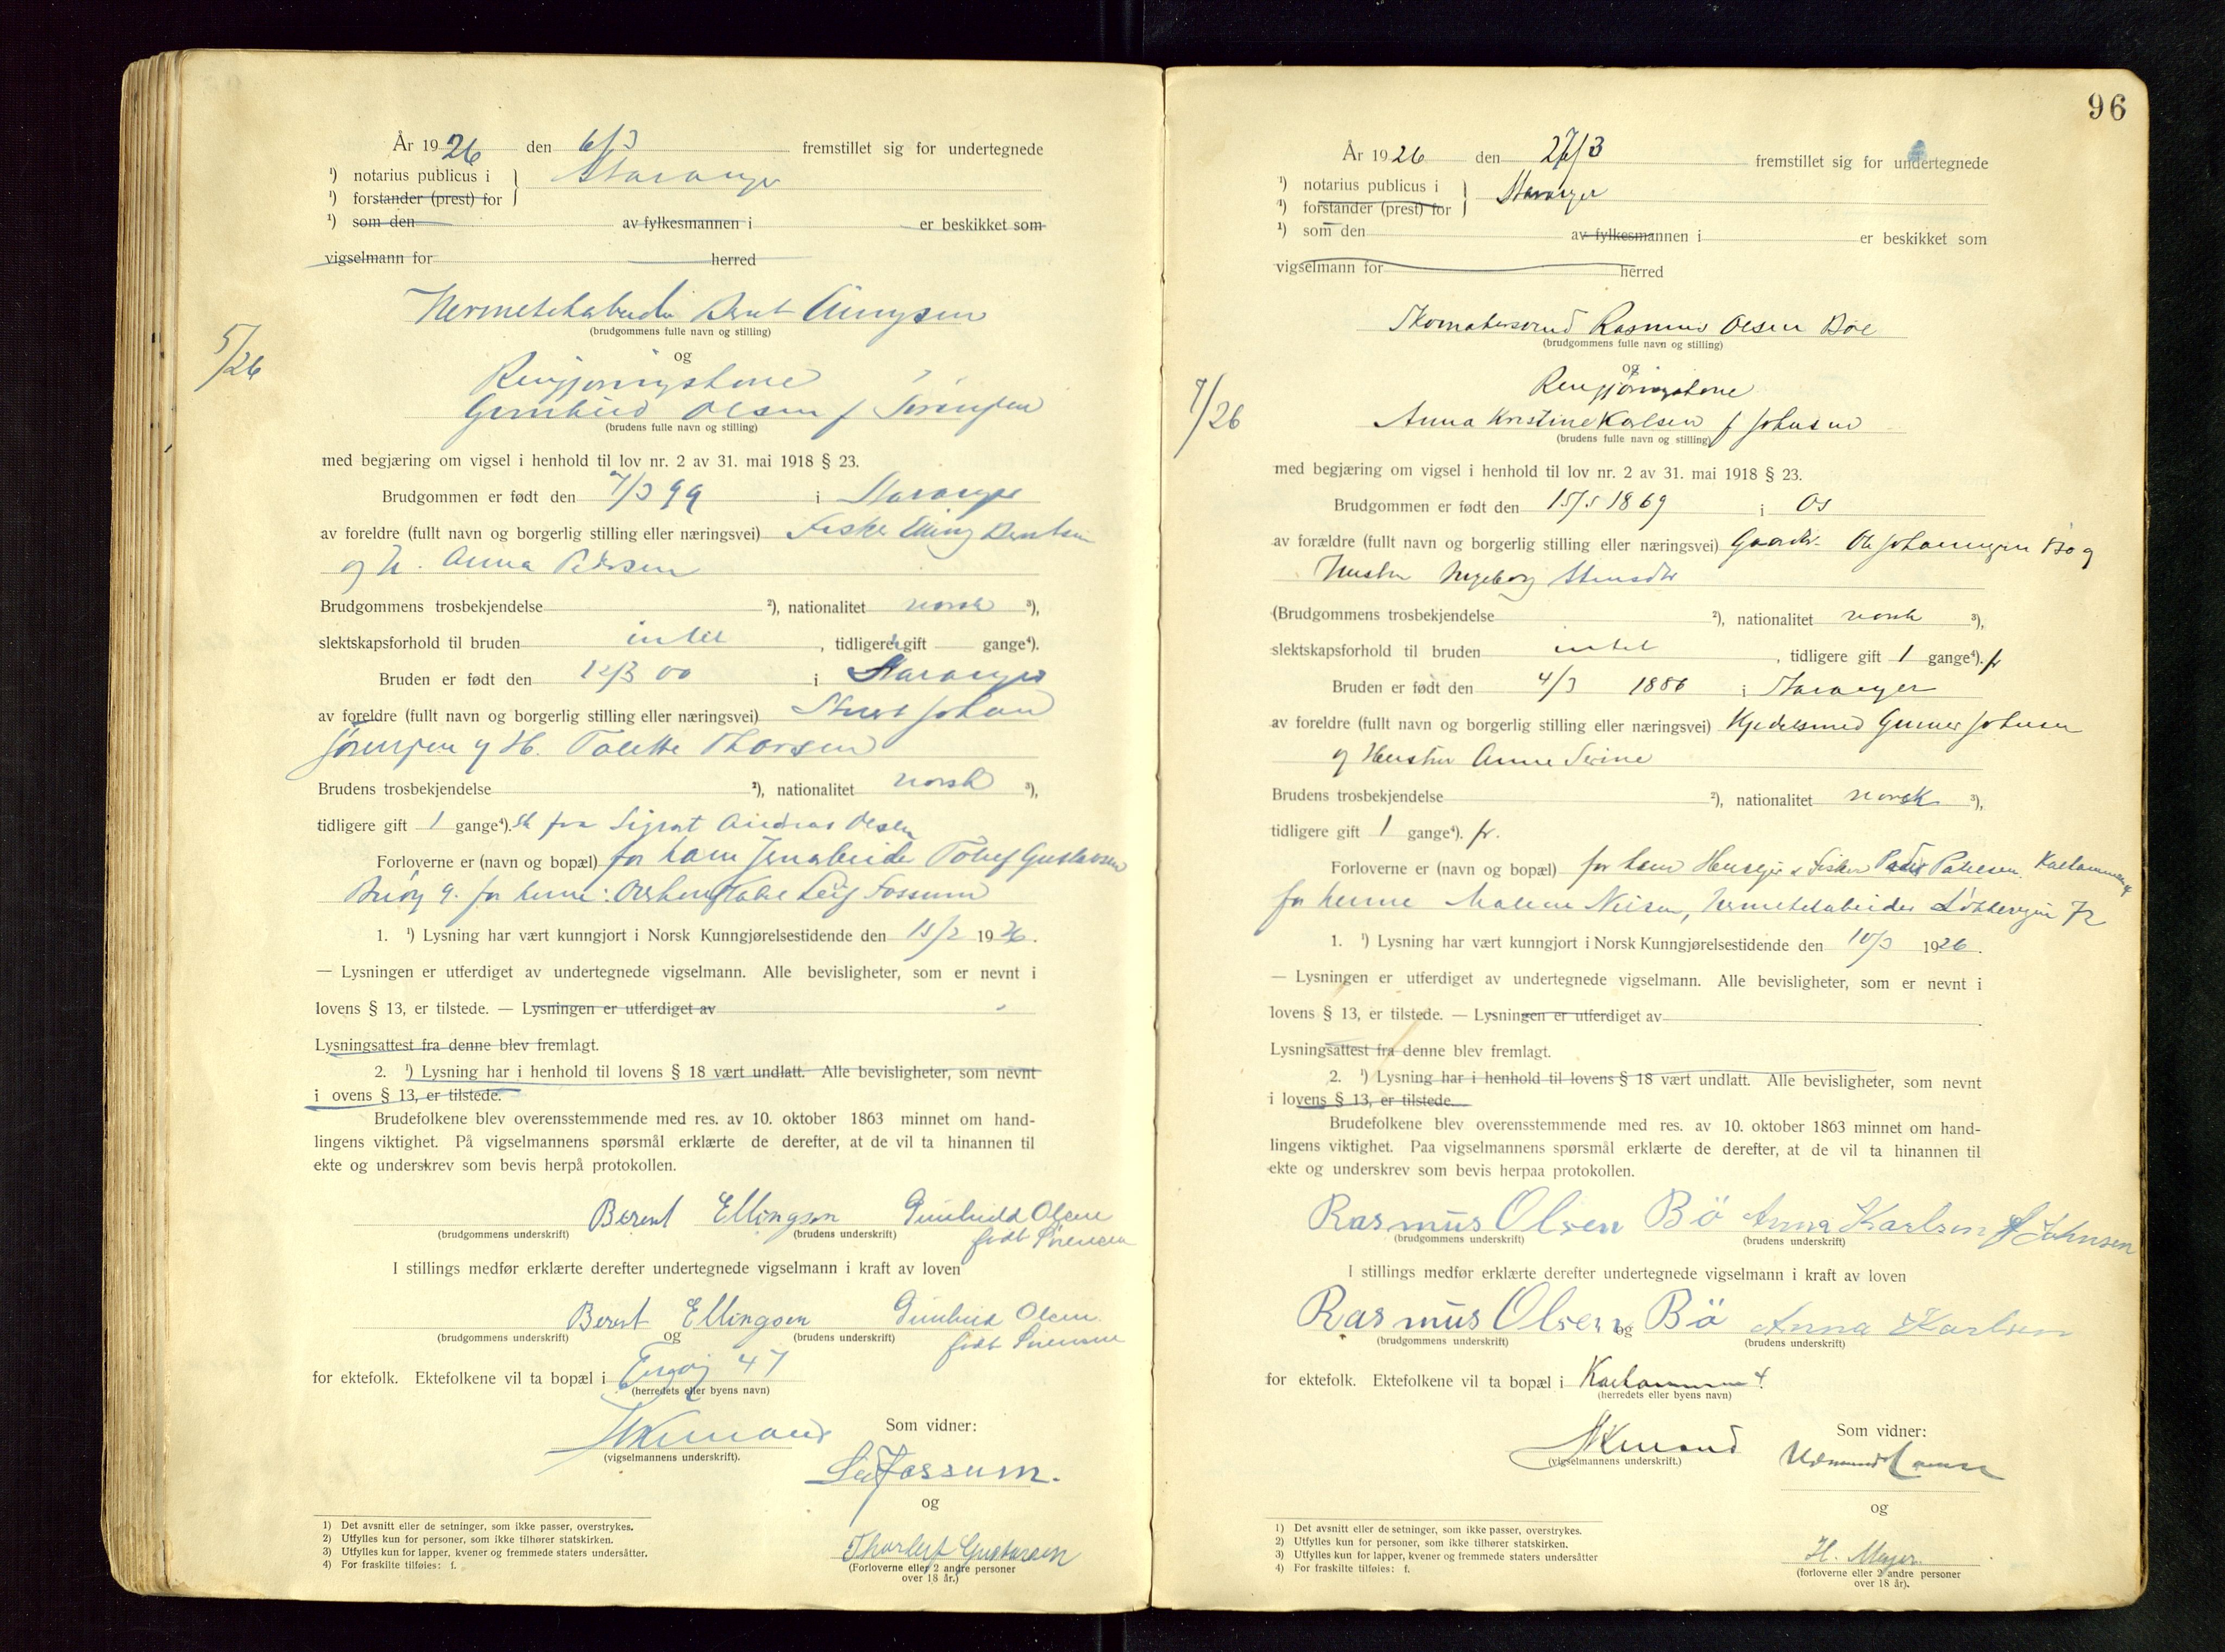 År 1926 den 6/3 fremstillet sig for undertegnede
¹) notarius publicus i } Stavanger
¹) forstander (prest) for
¹) som den av fylkesmannen i er beskikket som
vigselmann for herred
Bernt Ellingsen
(brudgommens fulle navn og stilling)
5/26
og
Rengjøringskone
Gunhild Olsen f Sørensen
(brudens fulle navn og stilling)
med begjæring om vigsel i henhold til lov nr. 2 av 31. mai 1918 § 23.
Brudgommen er født den 7/3 99 i Stavanger
av foreldre (fullt navn og borgerlig stilling eller næringsvei) Fisker Elling Berntsen
og h. Anna Pedersen
Brudgommens trosbekjendelse ²), nationalitet norsk ³),
slektskapsforhold til bruden intet , tidligere gift gange⁴).
Bruden er født den 12/3 00 i Stavanger
av foreldre (fullt navn og borgerlig stilling eller næringsvei) Johan
Sørensen og H. Tolette Thorsen
Brudens trosbekjendelse ²), nationalitet norsk ³),
tidligere gift 1 gange⁴). sk fra Sigvat Andreas Olsen
Forloverne er (navn og bopæl) for ham Tollef Gustavsen
9. for henne: Leif Fossum
1. ¹) Lysning har vært kunngjort i Norsk Kunngjørelsestidende den 15/2 1926.
— Lysningen er utferdiget av undertegnede vigselmann. Alle bevisligheter, som er nevnt i
lovens § 13, er tilstede. — Lysningen er utferdiget av
Lysningsattest fra denne blev fremlagt.
2. ¹) Lysning har i henhold til lovens § 18 vært undlatt. Alle bevisligheter, som nevnt
i ovens § 13, er tilstede.
Brudefolkene blev overensstemmende med res. av 10. oktober 1863 minnet om hand-
lingens viktighet. På vigselmannens spørsmål erklærte de derefter, at de vil ta hinannen til
ekte og underskrev som bevis herpå protokollen.
Berent Ellingsen Gunhild Olsen
(brudgommens underskrift) (brudens underskrift) født Sörensen
I stillings medfør erklærte derefter undertegnede vigselmann i kraft av loven
Berent Ellingsen Gunhild Olsen
(brudgommens underskrift) og (brudens underskrift) født Sörensen
for ektefolk. Ektefolkene vil ta bopæl i 47
(herredets eller byens navn)
Som vidner:
(vigselmannens underskrift).
Leif Fossum.
og
Thorleif Gustavsen
(Forloverne eller 2 andre personer
over 18 år.)
1) Det avsnitt eller de setninger, som ikke passer, overstrykes.
2) Utfylles kun for personer, som ikke tilhører statskirken.
3) Utfylles kun for lapper, kvener og fremmede staters undersåtter.
4) For fraskilte tilføies: f.
96
År 1926 den 27/3 fremstillet sig for undertegnede
¹) notarius publicus i } Stavanger
¹) forstander (prest) for
¹) som den av fylkesmannen i er beskikket som
vigselmann for herred
Skomakersvend Rasmus Olsen Bøe
(brudgommens fulle navn og stilling)
og
7/26
Rengjøringskone
Anna Kristine Karlsen f Johnsen
(brudens fulle navn og stilling)
med begjæring om vigsel i henhold til lov nr. 2 av 31. mai 1918 § 23.
Brudgommen er født den 15/5 1869 i Os
av forældre (fullt navn og borgerlig stilling eller næringsvei) Gaardbr. Ole Johannesen Bø og
Hustru Ingeborg
(Brudgommens trosbekjendelse ²), nationalitet norsk ³),
slektskapsforhold til bruden intet , tidligere gift 1 gange⁴). fr
Bruden er født den 4/3 1886 i Stavanger
av foreldre (fullt navn og borgerlig stilling eller næringsvei) Kjedelsmed Gunner Johnsen
og Hustru Anne Serine
Brudens trosbekjendelse ²), nationalitet norsk ³),
tidligere gift 1 gange⁴). fr.
Forloverne er (navn og bopæl) for ham Husejer & Fisker Peder
for henne Malene Nilsen, Hermetikarbeider Løkkeveien 72
1. ¹) Lysning har vært kunngjort i Norsk Kunngjørelsestidende den 10/3 1926.
— Lysningen er utferdiget av undertegnede vigselmann. Alle bevisligheter, som er nevnt i
lovens § 13, er tilstede. — Lysningen er utferdiget av
Lysningsattest fra denne blev fremlagt.
2. ¹) Lysning har i henhold til lovens § 18 vært undlatt. Alle bevisligheter, som nevnt
i lovens § 13, er tilstede.
Brudefolkene blev overensstemmende med res. av 10. oktober 1863 minnet om hand-
lingens viktighet. Paa vigselmannens spørsmål erklærte de derefter, at de vil ta hinannen til
ekte og underskrev som bevis herpaa protokollen.
Rasmus Olsen Bö Anna Karlsen f Johnsen
(brudgommens underskrift) (brudens underskrift)
I stillings medfør erklærte derefter undertegnede vigselmann i kraft av loven
Rasmus Olsen og Bö Anna Karlsen
(brudgommens underskrift) (brudens underskrift)
for ektefolk. Ektefolkene vil ta bopæl i 4.
(herredets eller byens navn)
Som vidner:
(vigselmannens underskrift.)
og
H. Meyer.
(forloverne eller 2 andre personer
over 18 år).
1) Det avsnitt eller de setninger, som ikke passer, overstrykes.
2) Utfylles kun for personer, som ikke tilhører statskirken.
3) Utfylles kun for lapper, kvener og fremmede staters undersåtter
4) For fraskilte tilføies: f.